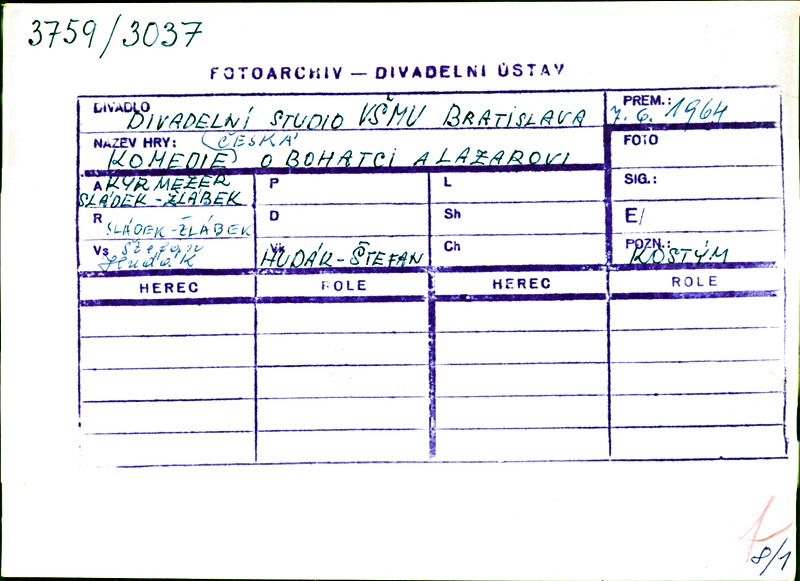 3759/3037
FOTOARCHIV — DIVADELNÍ ÚSTAV
DIVADLO DIVADELNÍ STUDIO VŠMU BRATISLAVA
PREM.: 7. 6. 1964
NÁZEV HRY: (ČESKÁ)
KOMEDIE O BOHATCI A LAZAROVI
FOTO
A KYRMEZER
SLÁDEK-ŽLÁBEK
P
L
SIG.:
R SLÁDEK-ŽLÁBEK
D
Sh
E/
Vs Štefan
Hudák
Vk HUDÁK-ŠTEFAN
Ch
POZN.: KOSTÝM
HEREC ROLE HEREC ROLE
8/1